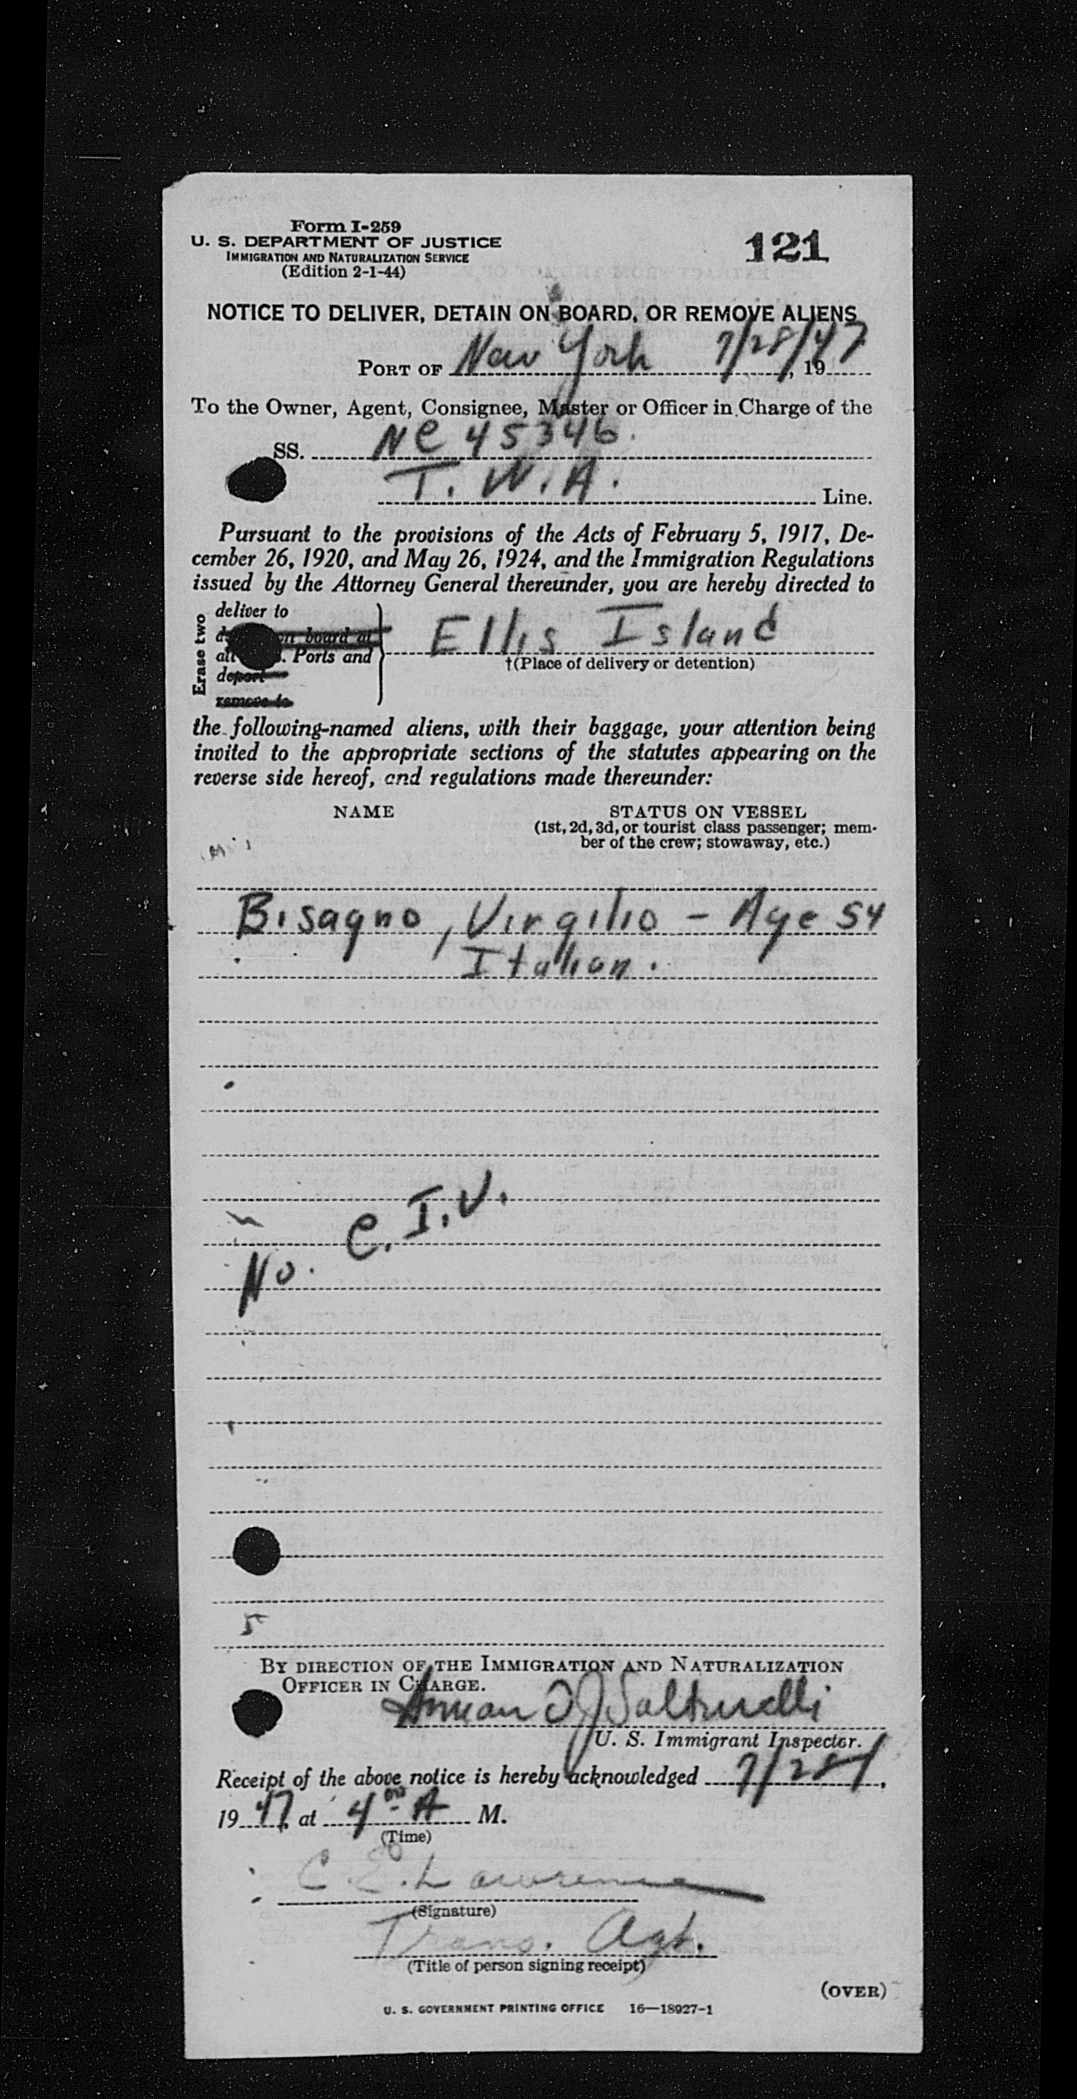 Form I-259
U. S. DEPARTMENT OF JUSTICE
IMMIGRATION AND NATURALIZATION SERVICE
(Edition 2-1-44)
121
NOTICE TO DELIVER, DETAIN ON BOARD, OR REMOVE ALIENS
PORT OF New York 7/28/47, 19
To the Owner, Agent, Consignee, Master or Officer in Charge of the
SS. NC 45346.
T. W. A. Line.
Pursuant to the provisions of the Acts of February 5, 1917, De-
cember 26, 1920, and May 26, 1924, and the Immigration Regulations
issued by the Attorney General thereunder, you are hereby directed to
Erase two
deliver to
on board at
Ports and
deport
remove to
Ellis Island
†(Place of delivery or detention)
the following-named aliens, with their baggage, your attention being
invited to the appropriate sections of the statutes appearing on the
reverse side hereof, and regulations made thereunder:
NAME
STATUS ON VESSEL
(1st, 2d, 3d, or tourist class passenger; mem-
ber of the crew; stowaway, etc.)
Bisagno, Virgilio - Age 54
Italian.
No. C.I.V.
5
BY DIRECTION OF THE IMMIGRATION AND NATURALIZATION
OFFICER IN CHARGE.
U. S. Immigrant Inspector.
Receipt of the above notice is hereby acknowledged 7/28/,
19 47 at 4 00 A M.
(Time)
C. E. Lawrence
(Signature)
Trans. Agt.
(Title of person signing receipt)
(OVER)
U. S. GOVERNMENT PRINTING OFFICE 16—18927-1